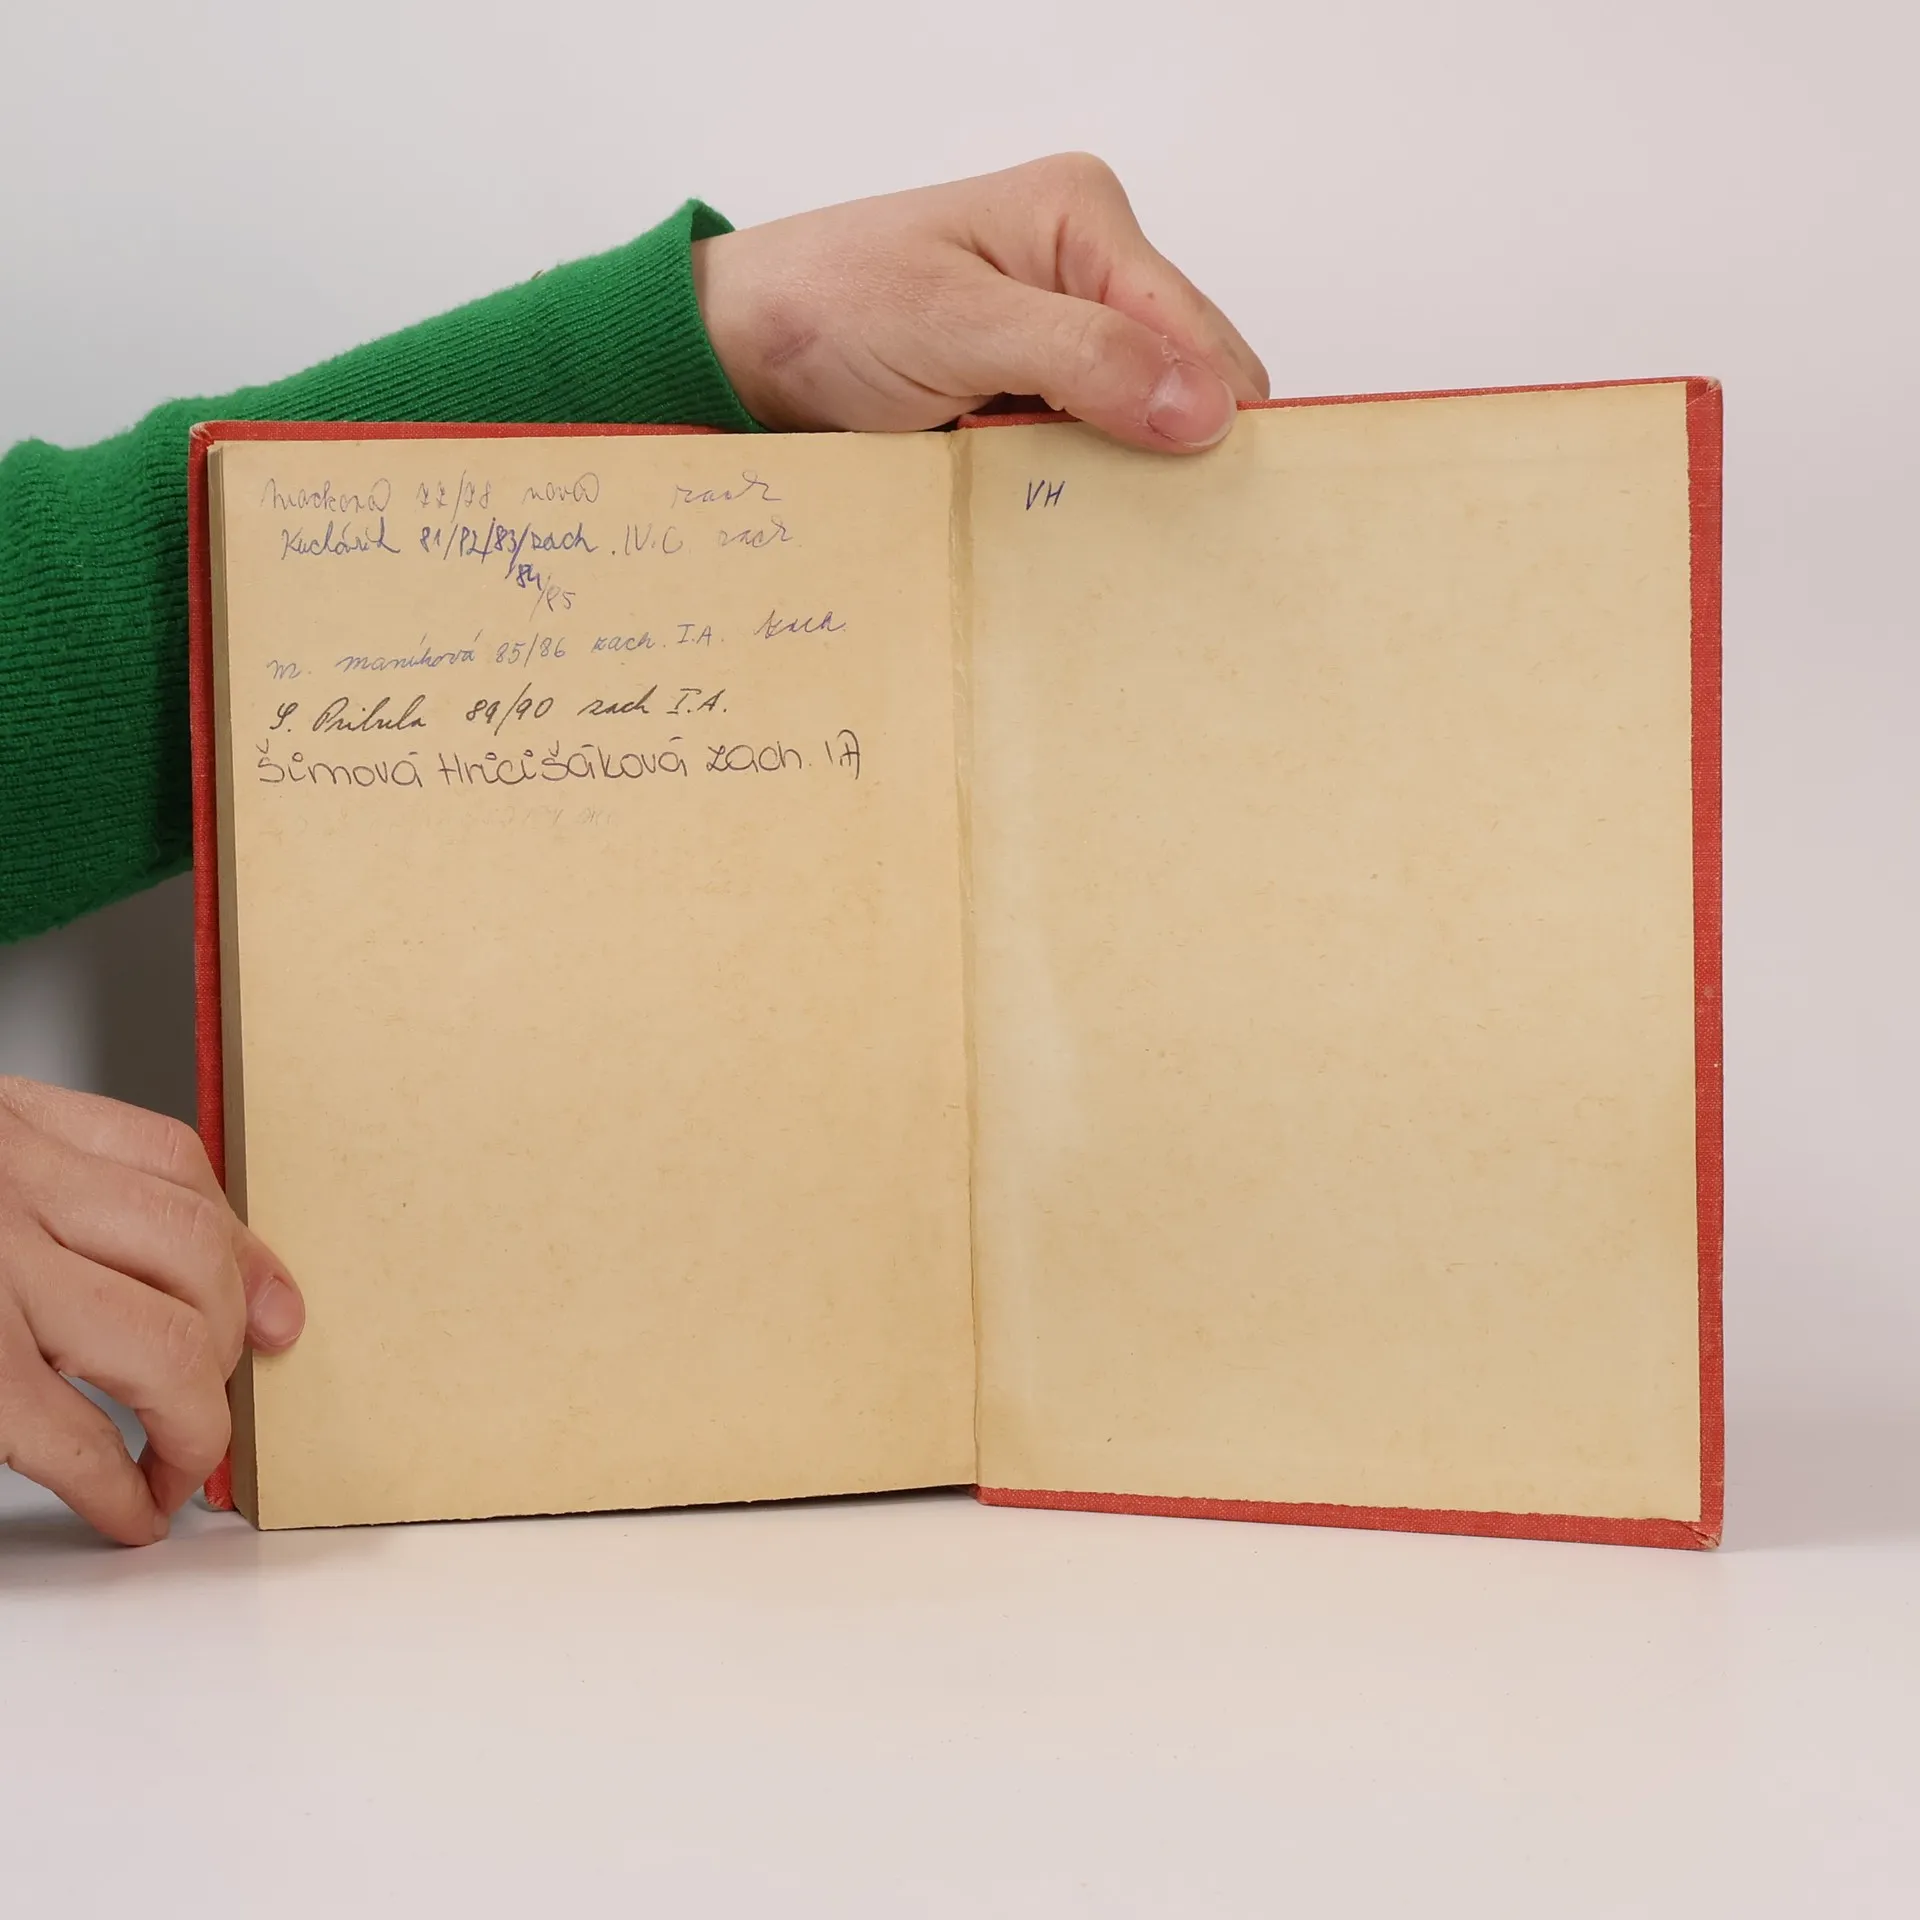 77/78 nová zach
Kuchárik 81/82/83/zach. IV.C zach.
84
/85
M. Maníková 85/86 zach. I.A. zach.
S. Pribula 89/90 zach I.A.
Šimová Hricišáková zach. IA
VH